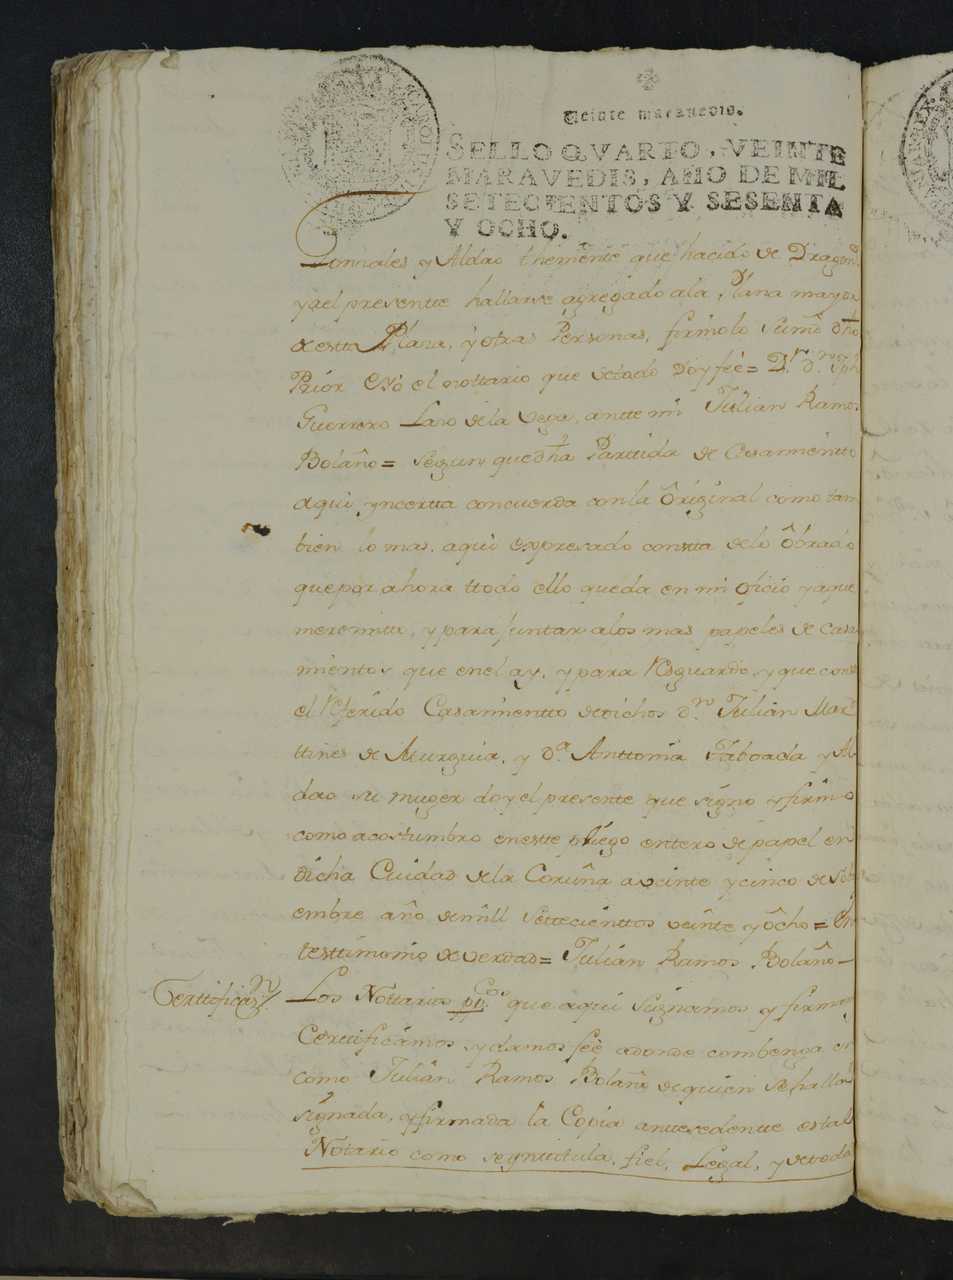 Veinte maravedis.
SELLO QVARTO, VEINTE
MARAVEDIS, AÑO DE MIL
SETECIENTOS Y SESENTA
Y OCHO.
Gonzales y Aldao thenientte que hacido de Dragon.s
y al presentte hallarse agregado ala Plana mayor
de estta Plaza, y otras Personas, firmolo sumd dho
Prior e Yó el nottario que de todo Doy feé = D.r d.n Jph
Guerrero Laso de la Vega, antte mi Julian Ramos
Bolaño = Segun que dha Parttida de Casamientto
aqui ynsertta concuerda con la Original como tam
bien lo mas, aqui expresado constta delo Obrado
que por ahora ttodo ello queda en mi oficio y a que
me remitto, y para juntar alos mas papeles de Casa
mientos que en el ay, y para Resguardo, y que constte
el Referido Casamientto de dichos d.n Julian Mar
ttines de Murguia, y D.a Anttonia Taboada y Al
dao su muger doy el presente que signo y firmo
como acostumbro en estte pliego entero de papel en
dicha Ciudad de la Coruña a veinte y cinco de Septi
embre año de mill Settecienttos veinte y ocho = En
testtimonio de verdad = Julian Ramos Bolaño =
Certtificaz.n
Los Nottarios pp.cos que aqui signamos y firmamos
Certtificamos, y damos feé adonde combenga
como Julian Ramos Bolaño de quien se halla
signada, y firmada la Copia anttesedentte es tal
Notario como se yntitula, fiel, Legal, y de toda